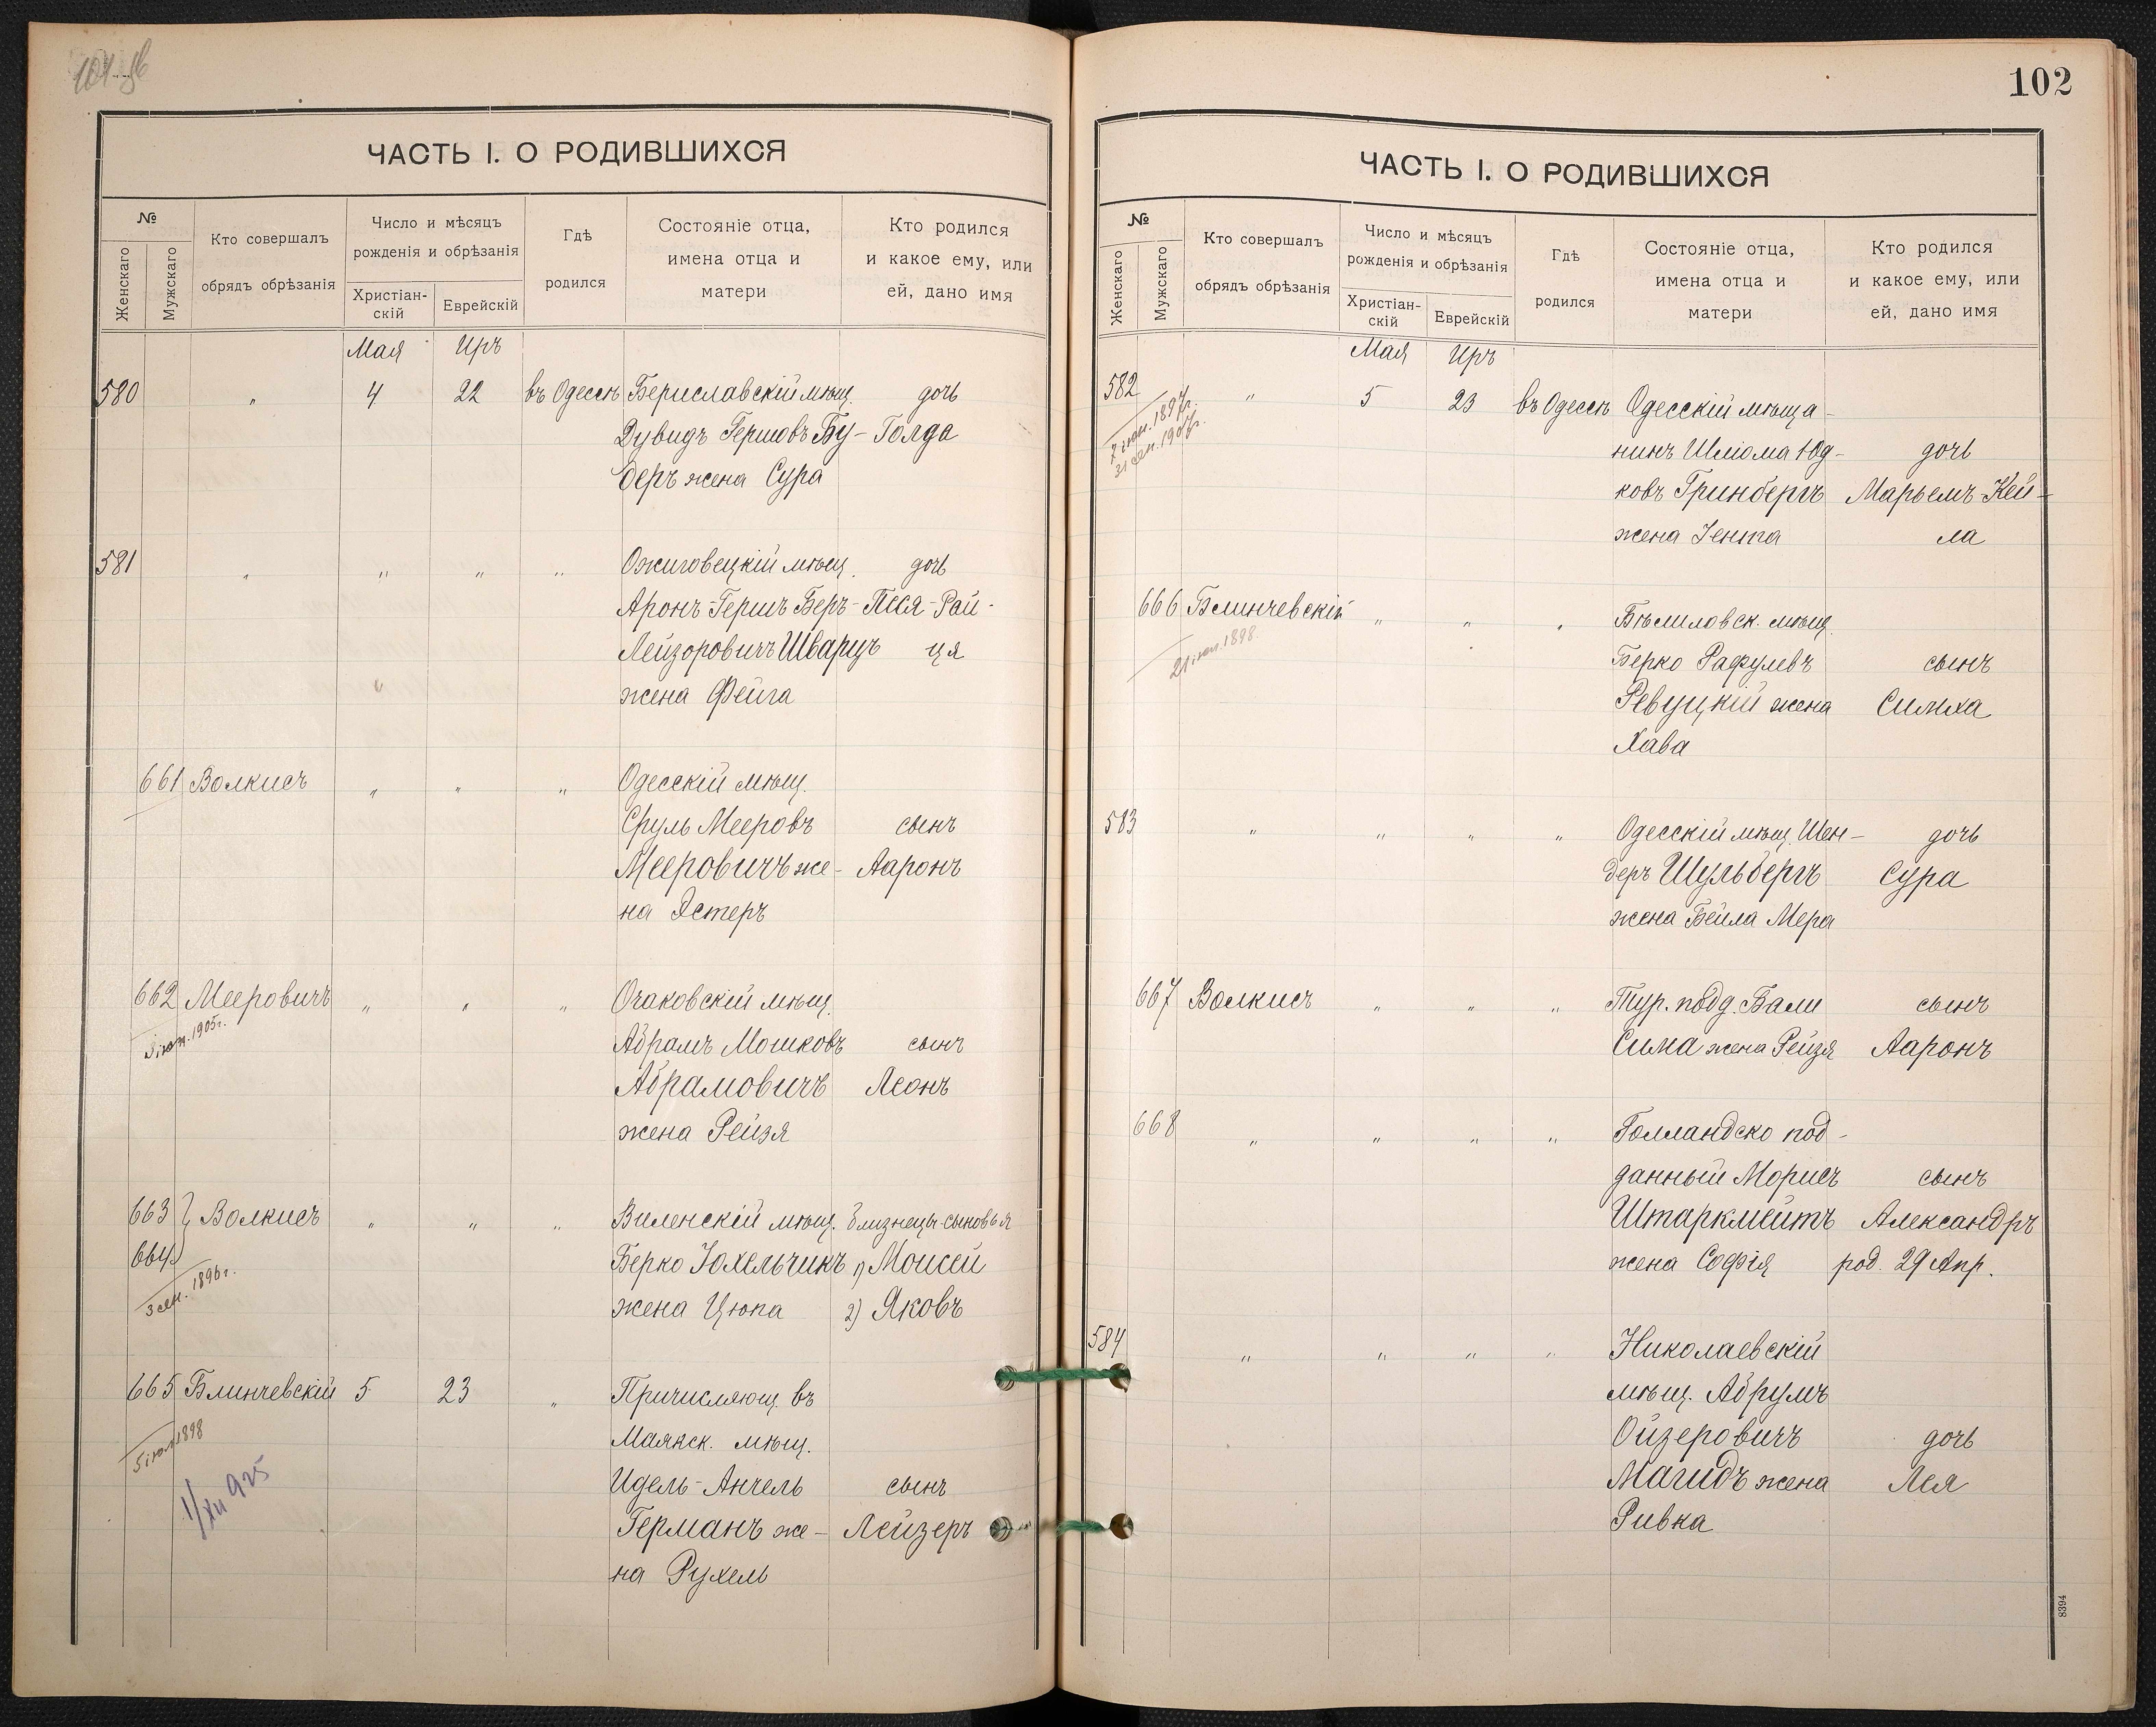 102
ЧАСТЬ I. О РОДИВШИХСЯ
№
Женскаго
Мужскаго
Кто совершалъ
обрядъ обрѣзанія
Число и мѣсяцъ
рожденія и обрѣзанія
Христіан-
скій
Еврейскій
Гдѣ
родился
Состояніе отца,
имена отца и
матери
Кто родился
и какое ему, или
ей, дано имя
Мая Иръ
580 „ 4 22 въ Одессѣ Бериславскій мѣщ. дочь
Дувидъ Гершовъ Бу- Голда
деръ жена Сура
581 „ „ „ „ Ожиговецкій мѣщ. дочь
Аронъ-Гершъ Беръ- Песя-Рай-
Лейзоровичъ Шварцъ ця
жена Фейга
661 Волкисъ „ „ „ Одесскій мѣщ.
Сруль Мееровъ сынъ
Мееровичъ же- Ааронъ
на Эстеръ
662 Мееровичъ „ „ „ Очаковскій мѣщ.
1905 г.
Абрамъ Мошковъ сынъ
Абрамовичъ Леонъ
жена Рейзя
663 Волкисъ „ „ „ Виленскій мѣщ. близнецы-сыновья
664 Берко Іохельчикъ 1) Моисей
3 сен. 1896 г.
жена Цюпа 2) Яковъ
665 Блинчевскій 5 23 „ Причисляющ. въ
5 іюл 1898
Маякск. мѣщ.
1/XII 925
Идель-Анчель сынъ
Германъ же- Лейзеръ
на Рухель
ЧАСТЬ I. О РОДИВШИХСЯ
№
Женскаго
Мужскаго
Кто совершалъ
обрядъ обрѣзанія
Число и мѣсяцъ
рожденія и обрѣзанія
Христіан-
скій
Еврейскій
Гдѣ
родился
Состояніе отца,
имена отца и
матери
Кто родился
и какое ему, или
ей, дано имя
Мая Иръ
582 „ 5 23 въ Одессѣ Одесскій мѣща-
1897 г.
нинъ Шліома Юд- дочь
ковъ Гринбергъ Марьемъ-Кей-
жена Іента ла
666 Блинчевскій „ „ „ Бѣлиловск. мѣщ.
1898
Берко Рафулевъ сынъ
Ревуцкій жена Симха
Хава
583 „ „ „ „ Одесскій мѣщ. Шен- дочь
деръ Шульбергъ Сура
жена Бейла Мера
667 Волкисъ „ „ „ Тур. подд. Бали сынъ
Сима жена Рейзя Ааронъ
668 „ „ „ „ Голландско под-
данный Морисъ сынъ
Штаркмейтъ Александръ
жена Софія род. 29 Апр.
584 „ „ „ „ Николаевскій
мѣщ. Абрумъ
Ойзеровичъ дочь
Магидъ жена Лея
Ривка
8394